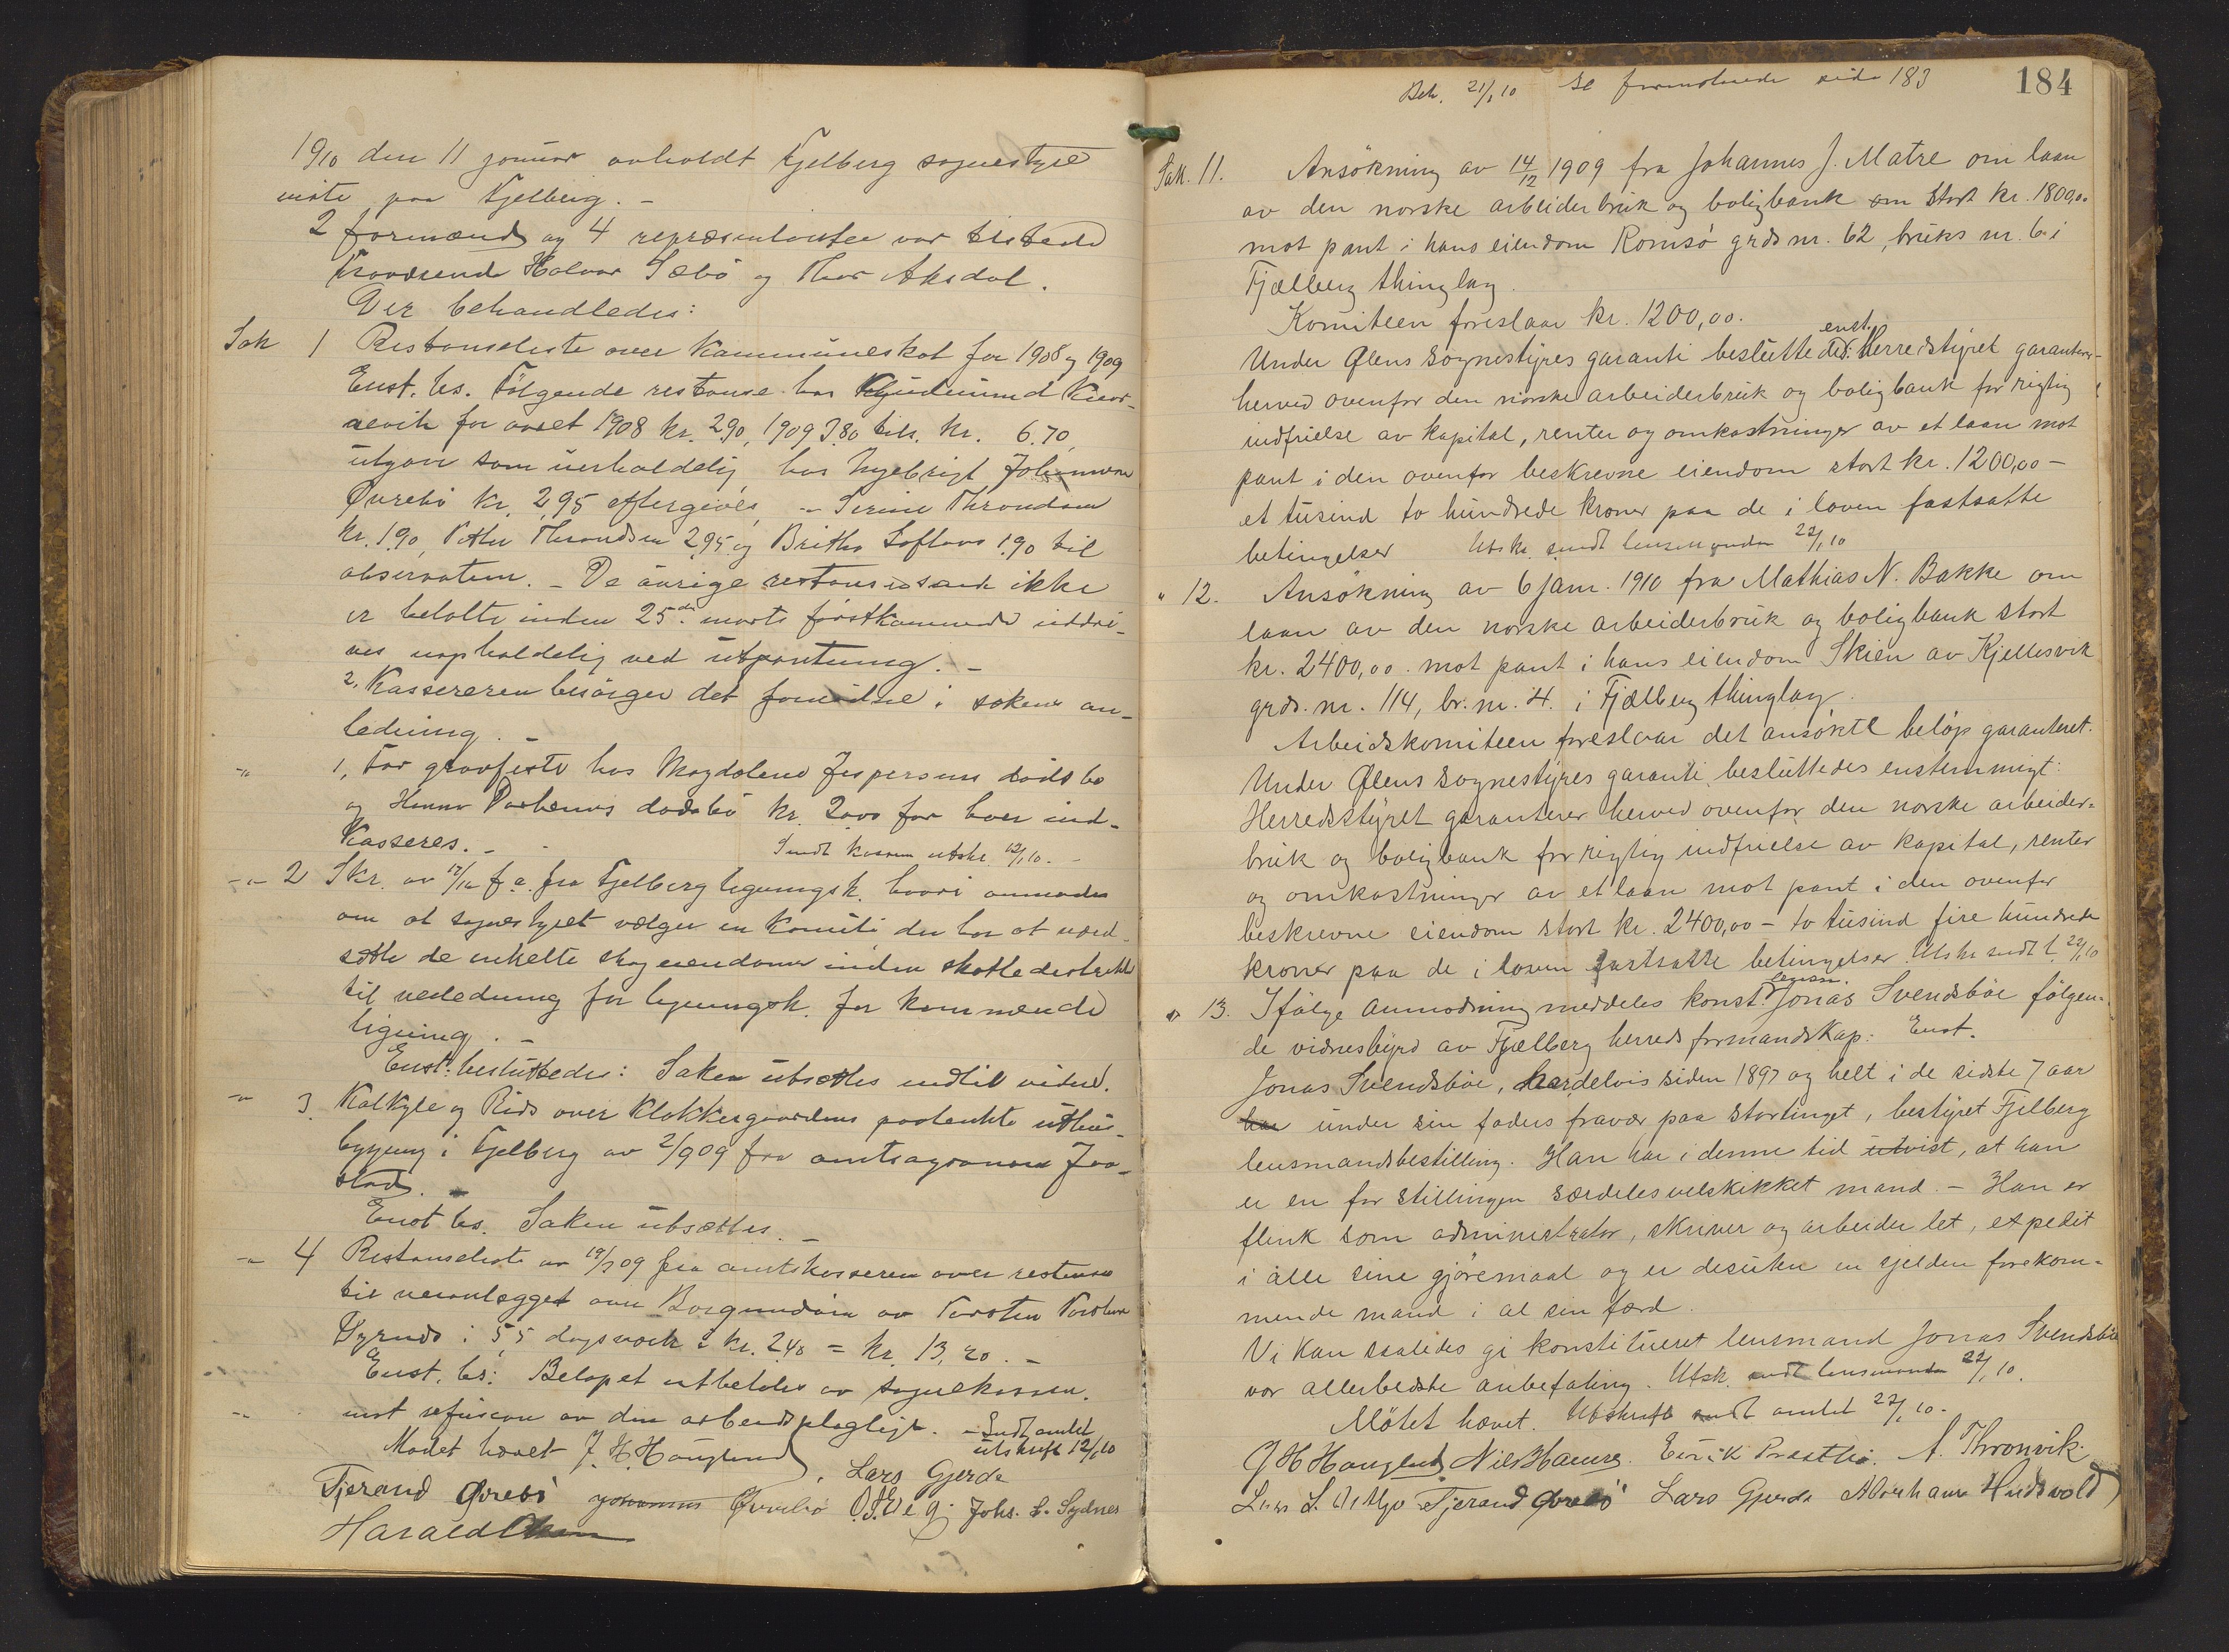 1910 den 11 januar avholdt Fjelberg sognestyre
møte paa Fjelberg. -
2 formænd og 4 repræsentanter var tilstede
Fraværende Halvor Sæbö og Thor Aksdal.
Der behandledes:
Sak 1 Restanseliste over Kommuneskat for 1908 og 1909
Enst. bs. Følgende restanse hos Gudmund Kvar-
nevik for aaret 1908 kr. 2,90, 1909 3.80 tils. kr. 6.70
utgaar som uerholdelig hos Ingebrigt Johannesen
Øvrebö kr. 2,95 eftergives - Serine Throndsen
kr. 1.90, Petter Throndsen 2,95 og Britha Loftons 1.90 til
observation. - De övrige restanser som ikke
er betalte inden 25de marts förstkommende inddri-
ves uopholdelig ved utpantning. -
2. Kassereren besörger det fornödne i sakens an-
ledning. -
-"- 1, For gravfeste hos Magdalene Jespersens dödsbo
og Hanna dödsbo kr. 20,00 for hver ind-
kasseres. - Sendt kassen utskr. 12/1 10. -
-"- 2 Skr. av 17/12 f.a. fra Fjelberg ligningsk. hvori anmodes
om at sognestyret vælger en komité der har at værd-
sætte de enkelte skogeiendomer inden skattedistriktet
til veiledning for ligningsk. for kommende
ligning. -
Enst. besluttedes: Saken utsættes indtil videre.
-"- 3. Kalkyle og Rids over Klokkergaardens paatenkte uthus-
bygning i Fjelberg av 2/9 09 fra amtsagronom Jaa-
stad. -
Enst bs. Saken utsættes. -
-"- 4 Restanseliste av 19/7 09 fra amtskasseren over restanse
til veianlægget over Borgundöen av Torsten Torstens
i 5,5 dagsverk à kr. 2.40 = kr. 13,20. -
Enst. bs: Belöpet utbetales av sognekassen.
mot refusion av den arbeidspligtige. - Sendt amtet
utskrift 12/1 10
Mødet hævet J. H. Hauglund, Lars Gjerde
Tjerand Øvrebö Johannes Øvrebö O.S. Veg. Johs. L. Sydnes
Harald Olsen
184
Beh. 21/1 10 Se foranstaaende side 183
Sak. 11. Ansökning av 14/12 1909 fra Johannes J. Matre om laan
av den norske arbeiderbruk og boligbank om stort kr. 1800,00
mot pant i hans eiendom Romsö grds nr. 62, bruks nr. 6 i
Fjælberg thinglag.
Komiteen foreslaar kr. 1200,00.
Under Ølens sognestyres garanti besluttedes enst.: Herredstyret garanterer
herved ovenfor den norske arbeiderbruk og boligbank for rigtig
indfrielse av kapital, renter og omkostninger av et laan mot
pant i den ovenfor beskrevne eiendom stort kr. 1200,00 -
et tusind to hundrede kroner paa de i loven fastsatte
betingelser Utskr. sendt lensmanden 22/1 10
" 12. Ansökning av 6 jan. 1910 fra Mathias N. Bakke om
laan av den norske arbeiderbruk og boligbank stort
kr. 2400,00. mot pant i hans eiendom Skien av Kjellesvik
grds. nr. 114, br. nr. 4. i Fjælberg thinglag.
Arbeidskomiteen foreslaar det ansökte belöp garanteret.
Under Ølens sognestyres garanti besluttedes enstemmigt:
Herredsstyret garanterer herved ovenfor den norske arbeider-
bruk og boligbank for rigtig indfrielse av kapital, renter
og omkostninger av et laan mot pant i den ovenfor
beskrevne eiendom stort kr. 2400,00 - to tusind fire hundrede
kroner paa de i loven fastsatte betingelser. Utskr sendt l. 22/1 10
" 13. Ifölge anmodning meddeles konst. lensm. Jonas Svendsböe fölgen-
de vidnesbyrd av Fjælberg herreds formandskap: Enst.
Jonas Svendsböe, har delvis siden 1897 og helt i de sidste 7 aar
har under sin faders fravær paa stortinget, bestyret Fjelberg
lensmandsbestilling. Han har i denne tid utvist, at han
er en for stillingen særdeles velskikket mand. - Han er
flink som administrator, skriver og arbeider let, expedit
i alle sine gjöremaal og er desuten en sjelden forekom-
mende mand i al sin færd.
Vi kan saaledes gi konstitueret lensmand Jonas Svendsböe
vor allerbedste anbefaling. Utsk. sendt lensmanden 22/1 10.
Mötet hævet. Utskrift sendt amtet 22/1 10.
J H Hauglund Nils Hauge. Eirik Prestbö. A. Thronvik.
Lars L. Tjerand Øvrebö Lars Gjerde Abraham Hudsvold